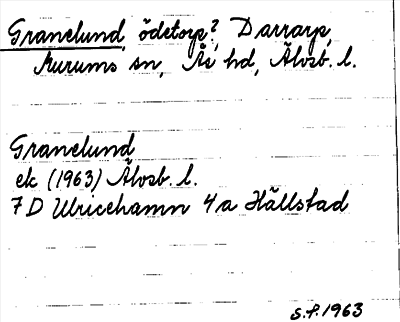 Granelund, ödetorp?, Darrarp,
Murums sn, Ås hd, Älvsb. l.
Granelund
ek (1963) Älvsb. l.
7D Ulricehamn 4a Hällstad
S.F. 1963